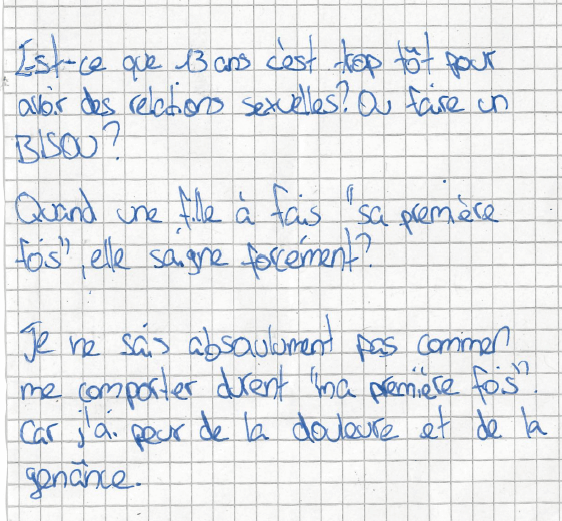 Est-ce que 13 ans c'est trop tôt pour
avoir des relations sexuelles? Ou faire un
BISOU?
Quand une fille à fais "sa première
fois", elle saigne forcément?
Je ne sais absoulument pas commen
me comporter durent "ma première fois".
Car j'ai peur de la douleure et de la
genänce.